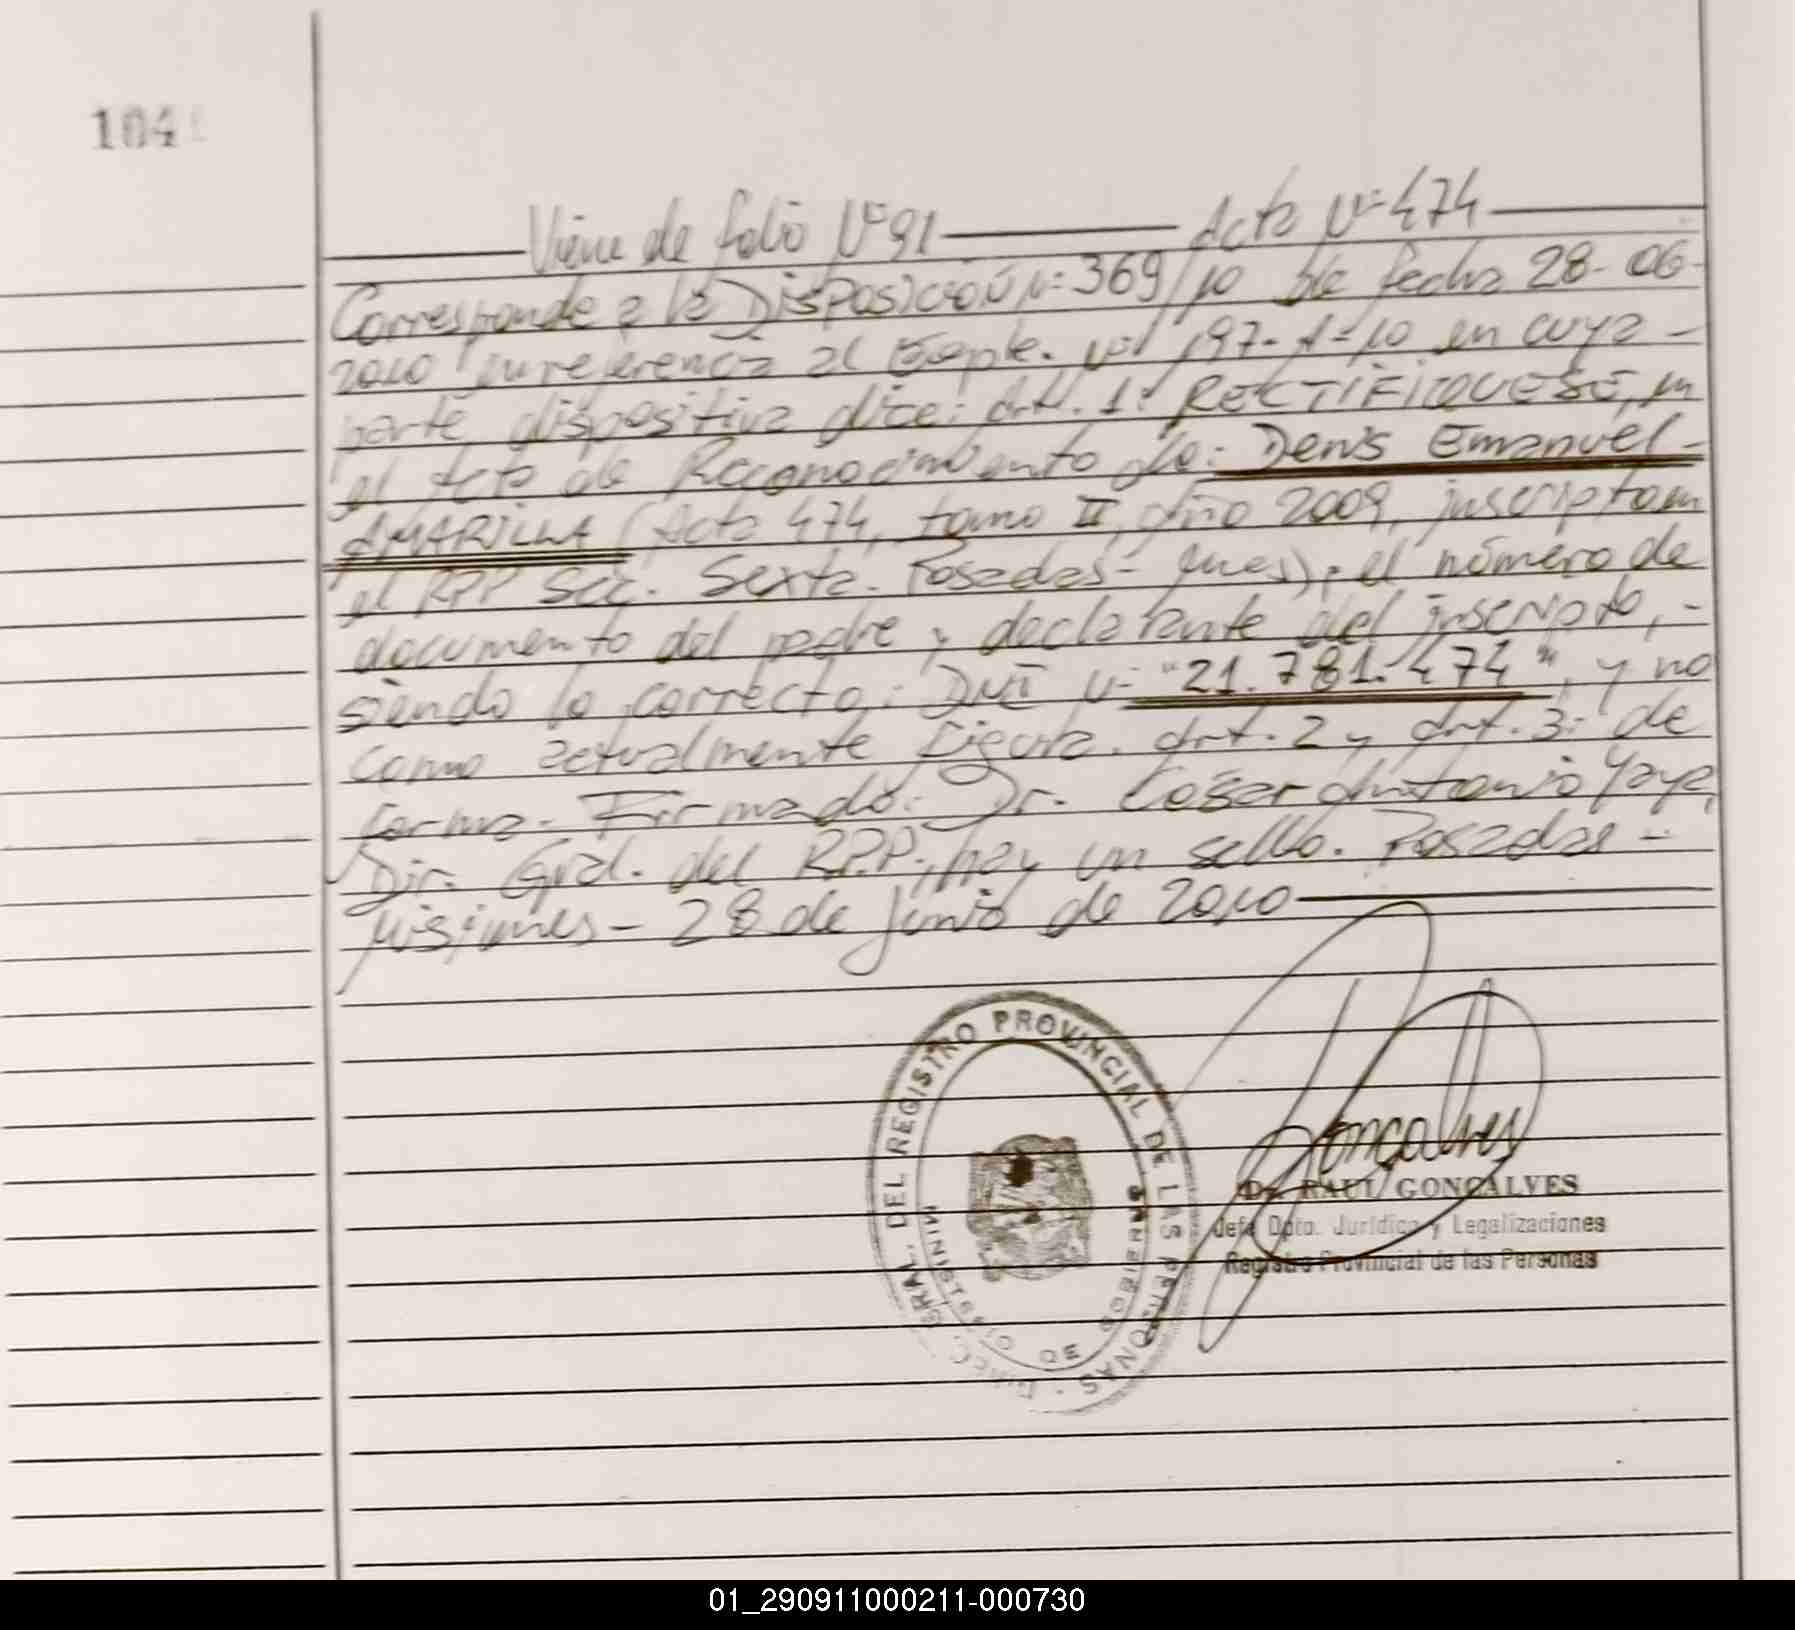 104
Viene de folio Nº 91 Acta Nº 474
Corresponde a la Disposición Nº 369/10 de fecha 28-06-
2010 en referencia al Expte. Nº 197-A-10 en cuya -
parte dispositiva dice: Art. 1º RECTIFIQUESE, en
el Acta de Reconocimiento de: Denis Emanuel -
AMARILLA (Acta 474, tomo II, año 2009, inscripta en
el RPP Sec. Sexta. Posadas - Mnes), el número de
documento del padre y declarante del inscripto, -
siendo lo correcto: DNI Nº "21.781.474", y no
como actualmente figura. Art. 2 y Art. 3: de
forma. Firmado: Dr. Antonio
Dir. Gral. del R.P.P., hay un sello. Posadas -
Misiones - 28 de Junio de 2010
Gonçalves
Dr. RAUL GONÇALVES
Jefe Dpto. Jurídico y Legalizaciones
Registro Provincial de las Personas
DIREC. GRAL. DEL REGISTRO PROVINCIAL DE LAS PERSONAS
MINISTERIO DE GOBIERNO
01_290911000211-000730